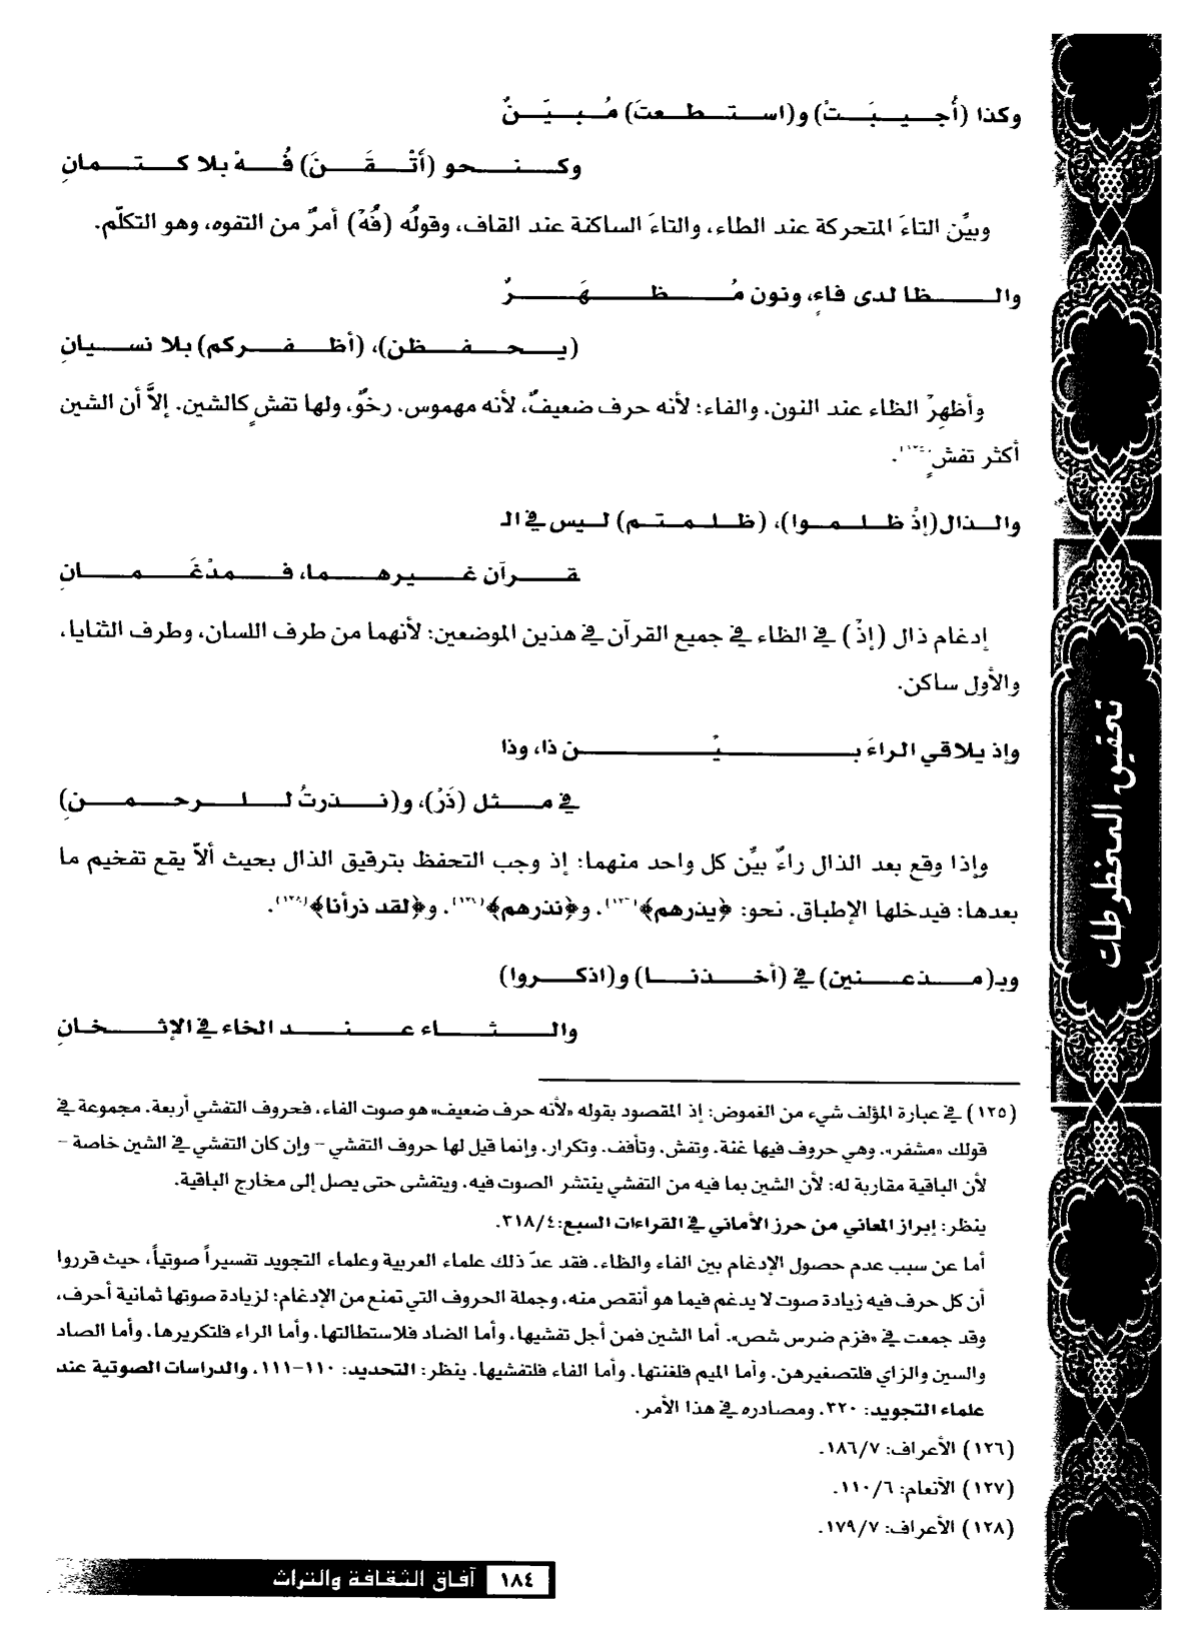 وكذا (أُجيبَتْ) و(استطعتَ) مُبيَنٌ
وكنحو (أَتْقَنَ) فُهْ بلا كتمانِ
وبيِّن التاءَ المتحركة عند الطاء، والتاءَ الساكنة عند القاف، وقولُه (فُهْ) أمرٌ من التفوه، وهو التكلّم.
والظا لدى فاءٍ، ونون مُظهَرٌ
(يحفظن)، (أظفركم) بلا نسيانِ
وأظهِرْ الظاء عند النون. والفاء: لأنه حرف ضعيفٌ، لأنه مهموس. رخوٌ، ولها تفشٍ كالشين. إلاَّ أن الشين
أكثر تفشٍ(١٢٥).
والذال(إذْ ظلموا)، (ظلمتم) ليس في الـ
قرآن غيرهما، فمدْغَمانِ
إدغام ذال (إذْ) في الظاء في جميع القرآن في هذين الموضعين: لأنهما من طرف اللسان، وطرف الثنايا،
والأول ساكن.
وإذ يلاقي الراءَ بيْن ذا، وذا
في مثل (ذَرْ)، و(نذرتُ للرحمنِ)
وإذا وقع بعد الذال راءٌ بيِّن كل واحد منهما: إذ وجب التحفظ بترقيق الذال بحيث ألاّ يقع تفخيم ما
بعدها: فيدخلها الإطباق. نحو: ﴿يذرهم﴾(١٢٦). و﴿نذرهم﴾(١٢٧). و﴿لقد ذرأنا﴾(١٢٨).
وبـ(مذعنين) في (أخذنا) و(اذكروا)
والثاء عند الخاء في الإثخانِ
(١٢٥) في عبارة المؤلف شيء من الغموض: إذ المقصود بقوله «لأنه حرف ضعيف» هو صوت الفاء، فحروف التفشي أربعة. مجموعة في
قولك «مشفر». وهي حروف فيها غنة. وتفش. وتأفف. وتكرار. وإنما قيل لها حروف التفشي – وإن كان التفشي في الشين خاصة –
لأن الباقية مقاربة له: لأن الشين بما فيه من التفشي ينتشر الصوت فيه. ويتفشى حتى يصل إلى مخارج الباقية.
ينظر: إبراز المعاني من حرز الأماني في القراءات السبع:٣١٨/٤.
أما عن سبب عدم حصول الإدغام بين الفاء والظاء. فقد عدّ ذلك علماء العربية وعلماء التجويد تفسيراً صوتياً، حيث قرروا
أن كل حرف فيه زيادة صوت لا يدغم فيما هو أنقص منه، وجملة الحروف التي تمنع من الإدغام: لزيادة صوتها ثمانية أحرف،
وقد جمعت في «فزم ضرس شص». أما الشين فمن أجل تفشيها، وأما الضاد فلاستطالتها. وأما الراء فلتكريرها. وأما الصاد
والسين والزاي فلتصغيرهن. وأما الميم فلغنتها. وأما الفاء فلتفشيها. ينظر: التحديد: ١١٠–١١١. والدراسات الصوتية عند
علماء التجويد: ٣٢٠. ومصادره في هذا الأمر.
(١٢٦) الأعراف: ١٨٦/٧.
(١٢٧) الأنعام: ١١٠/٦.
(١٢٨) الأعراف: ١٧٩/٧.
١٨٤ آفاق الثقافة والتراث
تحقيق المخطوطات